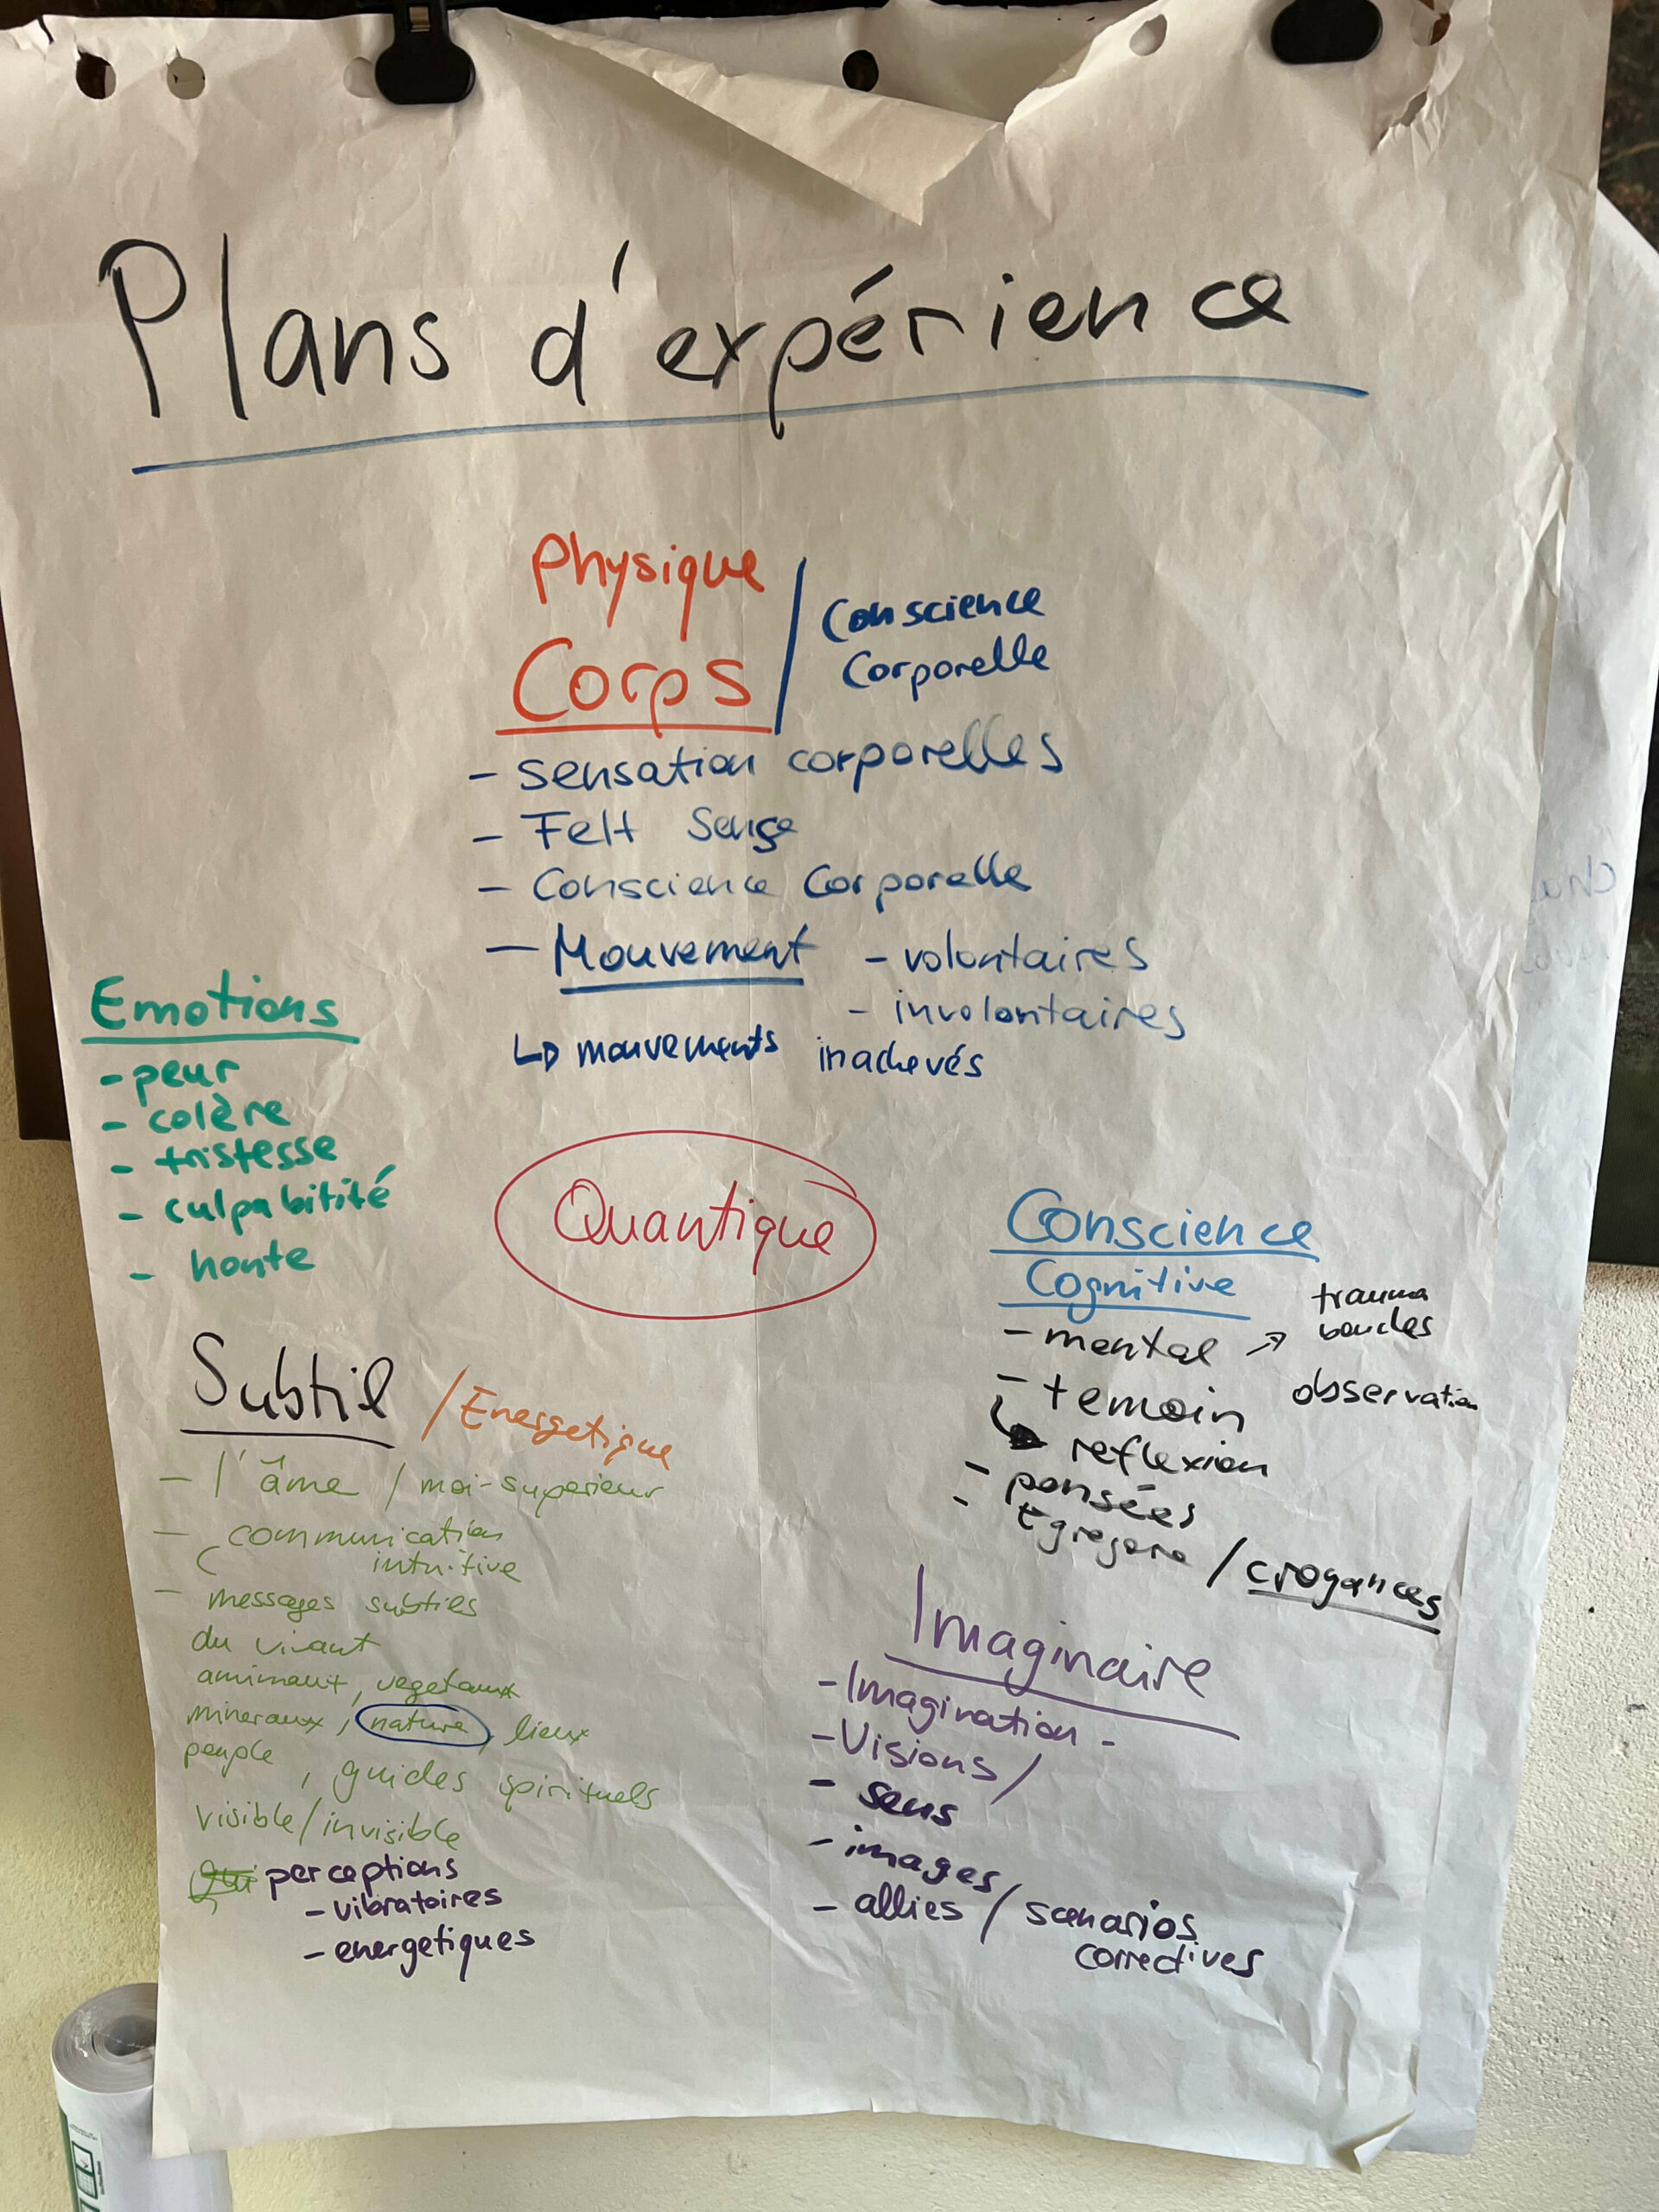 Plans d'expérience
Physique
Corps / Conscience
Corporelle
- sensation corporelles
- Felt Sense
- Conscience Corporelle
- Mouvement - volontaires
- involontaires
↳ mouvements inachevés
Emotions
- peur
- colère
- tristesse
- culpabitité
- honte
Quantique
Conscience
Cognitive
- mental → trauma
boucles
- temoin observation
↳ reflexion
- pensées
- Egregore / croyances
Subtil / Energetique
- l'âme / moi-superieur
- communication
intuitive
- messages subtils
du vivant
animaut, vegetaux
mineraux, nature, lieux
peuple, guides spirituels
visible/invisible
perceptions
- vibratoires
- energetiques
Imaginaire
- Imagination -
- Visions /
- sens
- images
- allies / scenarios
correctives